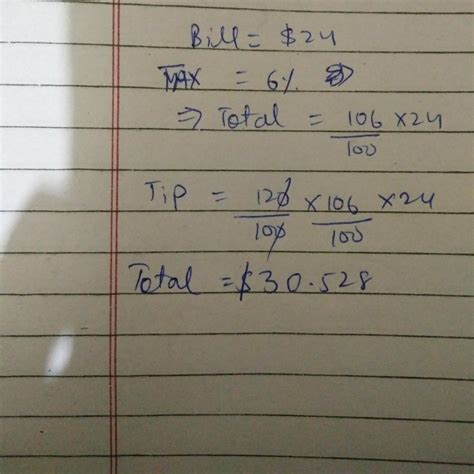 Bill = $24
MAX = 6%
⇒ Total = 106/100 × 24
Tip = 120/100 × 106/100 × 24
Total = $30.528